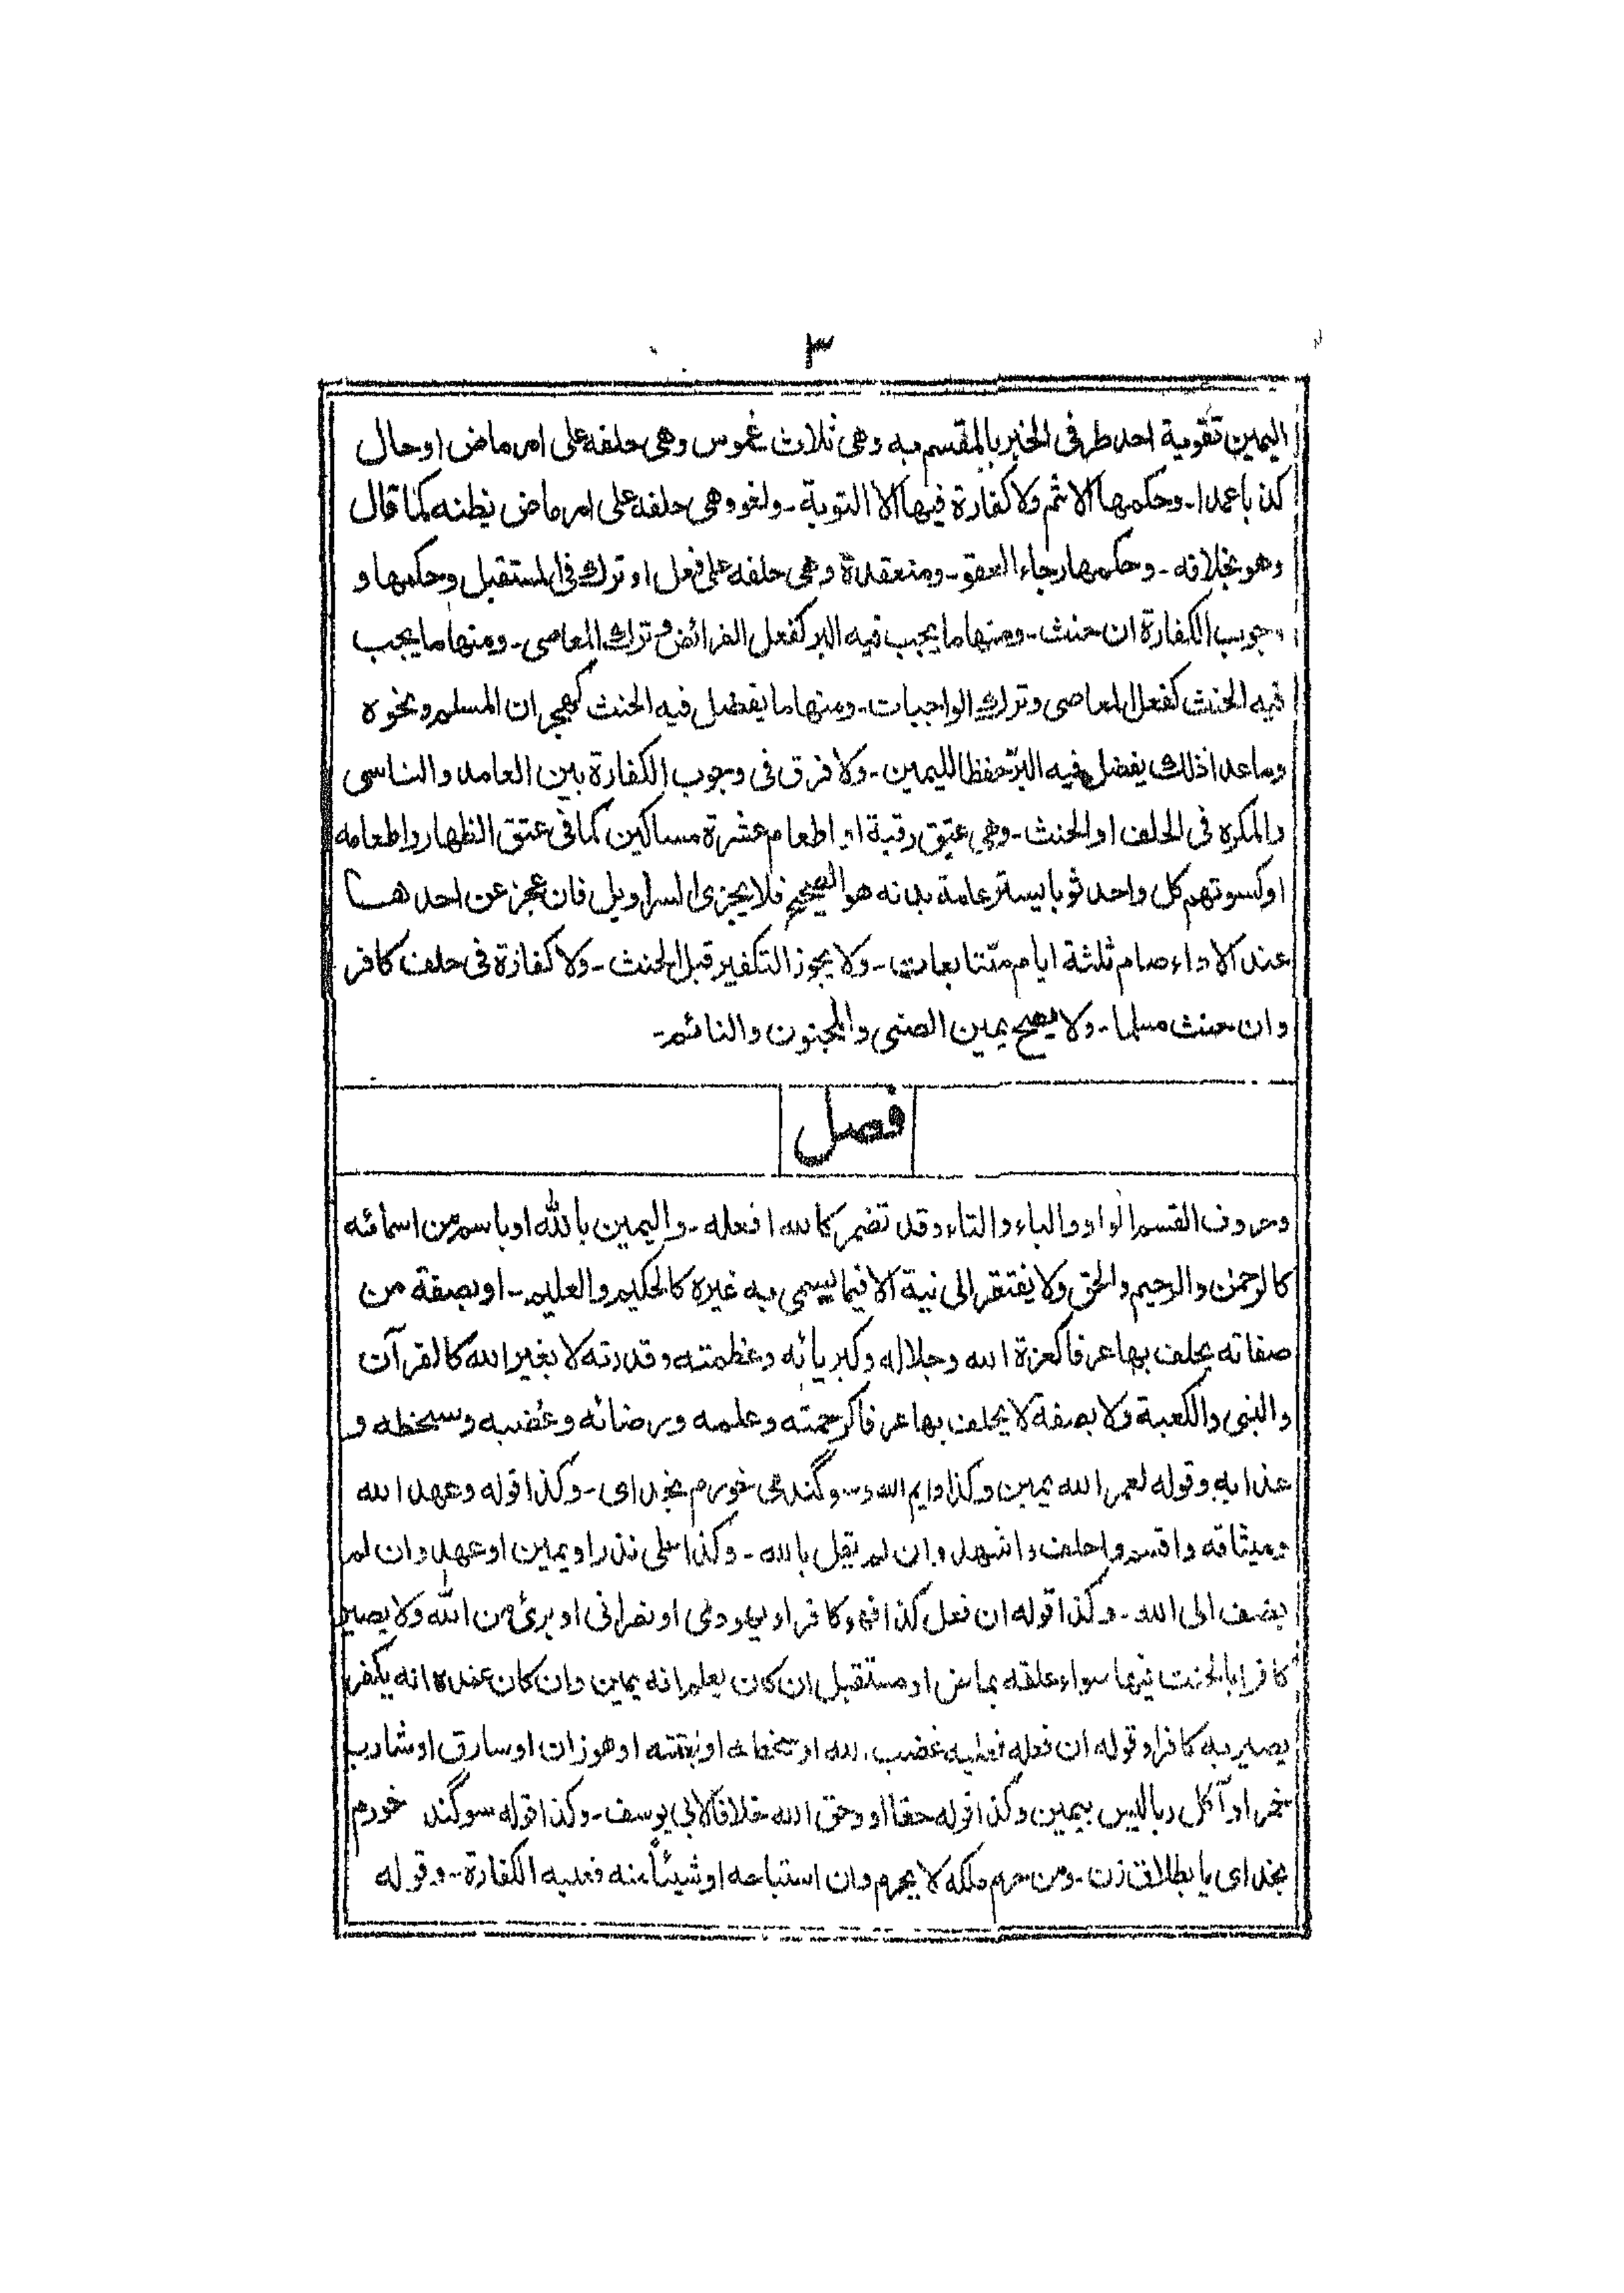 ٣
اليمين تقوية احد طرفى الخبر بالمقسم به وهى ثلاث غموس وهى حلفه على امر ماض او حال
كذبا عمدا ـ وحكمها الاثم ولا كفارة فيها الا التوبة ـ ولغو وهى حلفه على امر ماض يظنه كما قال
وهو بخلافه ـ وحكمها رجاء العفو ـ ومنعقدة وهى حلفه على فعل او ترك فى المستقبل وحكمها و
وجوب الكفارة ان حنث ـ ومنها ما يجب فيه البر كفعل الفرائض وترك المعاصى ـ ومنها ما يجب
فيه الحنث كفعل المعاصى وترك الواجبات ـ ومنها ما يفضل فيه الحنث كهجران المسلم ونحوه
وما عدا ذلك يفضل فيه البرّ حفظا لليمين ـ ولا فرق فى وجوب الكفارة بين العامد والناسى
والمكره فى الحلف او الحنث ـ وهى عتق رقبة او اطعام عشرة مساكين كما فى عتق الظهار واطعامه
او كسوتهم كل واحد ثوبا يستر عامة بدنه هو الصحيح فلا يجزى السراويل فان عجز عن احدها
عند الاداء صام ثلثة ايام متتابعات ـ ولا يجوز التكفير قبل الحنث ـ ولا كفارة فى حلف كافر
وان حنث مسلما ـ ولا يصح يمين الصبى والمجنون والنائم ـ
فصل
وحروف القسم الواو والباء والتاء وقد تضمر كالله افعله ـ واليمين بالله او باسم من اسمائه
كالرحمٰن والرحيم والحق ولا يفتقر الى نية الا فيما يسمى به غيره كالحكيم والعليم ـ او بصفة من
صفاته يحلف بها عرفا كعزة الله وجلاله وكبريائه وعظمته وقدرته لا بغير الله كالقرآن
والنبى والكعبة ولا بصفة لا يحلف بها عرفا كرحمته وعلمه ورضائه وغضبه وسخطه و
عذابه وقوله لعمر الله يمين وكذا وايم الله و سوگند مى خورم بخداى ـ وكذا قوله وعهد الله
وميثاقه واقسم واحلف واشهد وان لم يقل بالله ـ وكذا على نذر او يمين او عهد وان لم
يضف الى الله ـ وكذا قوله ان فعل كذا فهو كافر او يهودى او نصرانى او برئ من الله ولا يصير
كافرا بالحنث فيهما سواء علقه بماض او مستقبل ان كان يعلم انه يمين وان كان عنده انه يكفر
يصير به كافرا وقوله ان فعله فعليه غضب الله او سخطه او لعنته او هو زان او سارق او شارب
خمر او آكل ربا ليس بيمين وكذا قوله حقا او وحق الله خلافا لابى يوسف ـ وكذا قوله سوگند خورم
بخداى يا بطلاق زن ـ ومن حرم ملكه لا يحرم وان استباحه او شيئاً منه فعليه الكفارة ـ وقوله